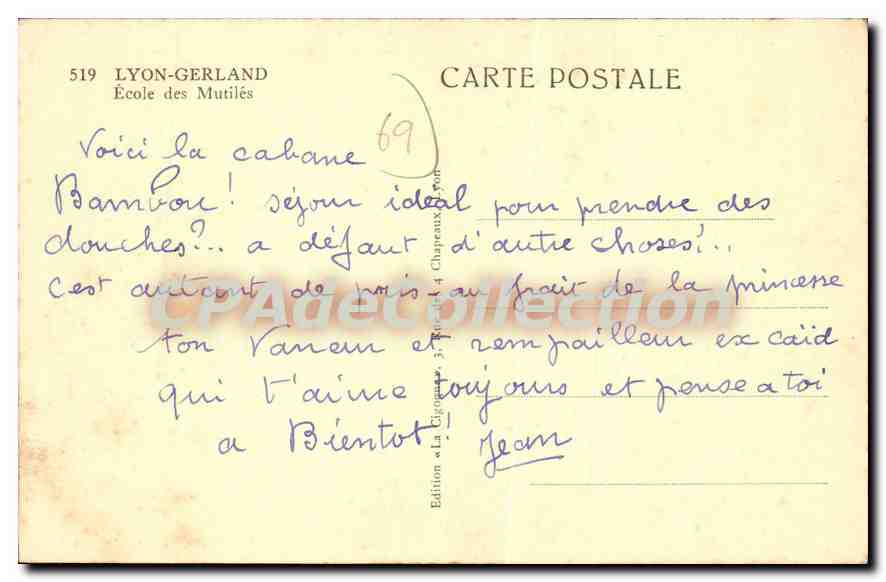 519 LYON-GERLAND
École des Mutilés
CARTE POSTALE
69
Voici la cabane
Bambou! séjour idéal pour prendre des
douches?.. a défaut d'autre choses!..
c'est autant de pris - au frait de la princesse
ton Vaneur et rempailleur ex caïd
qui t'aime toujours et pense a toi
a Bientot! Jean
Edition «La Cigogne», 3, Rue des 4 Chapeaux, Lyon
CPAdeCollection